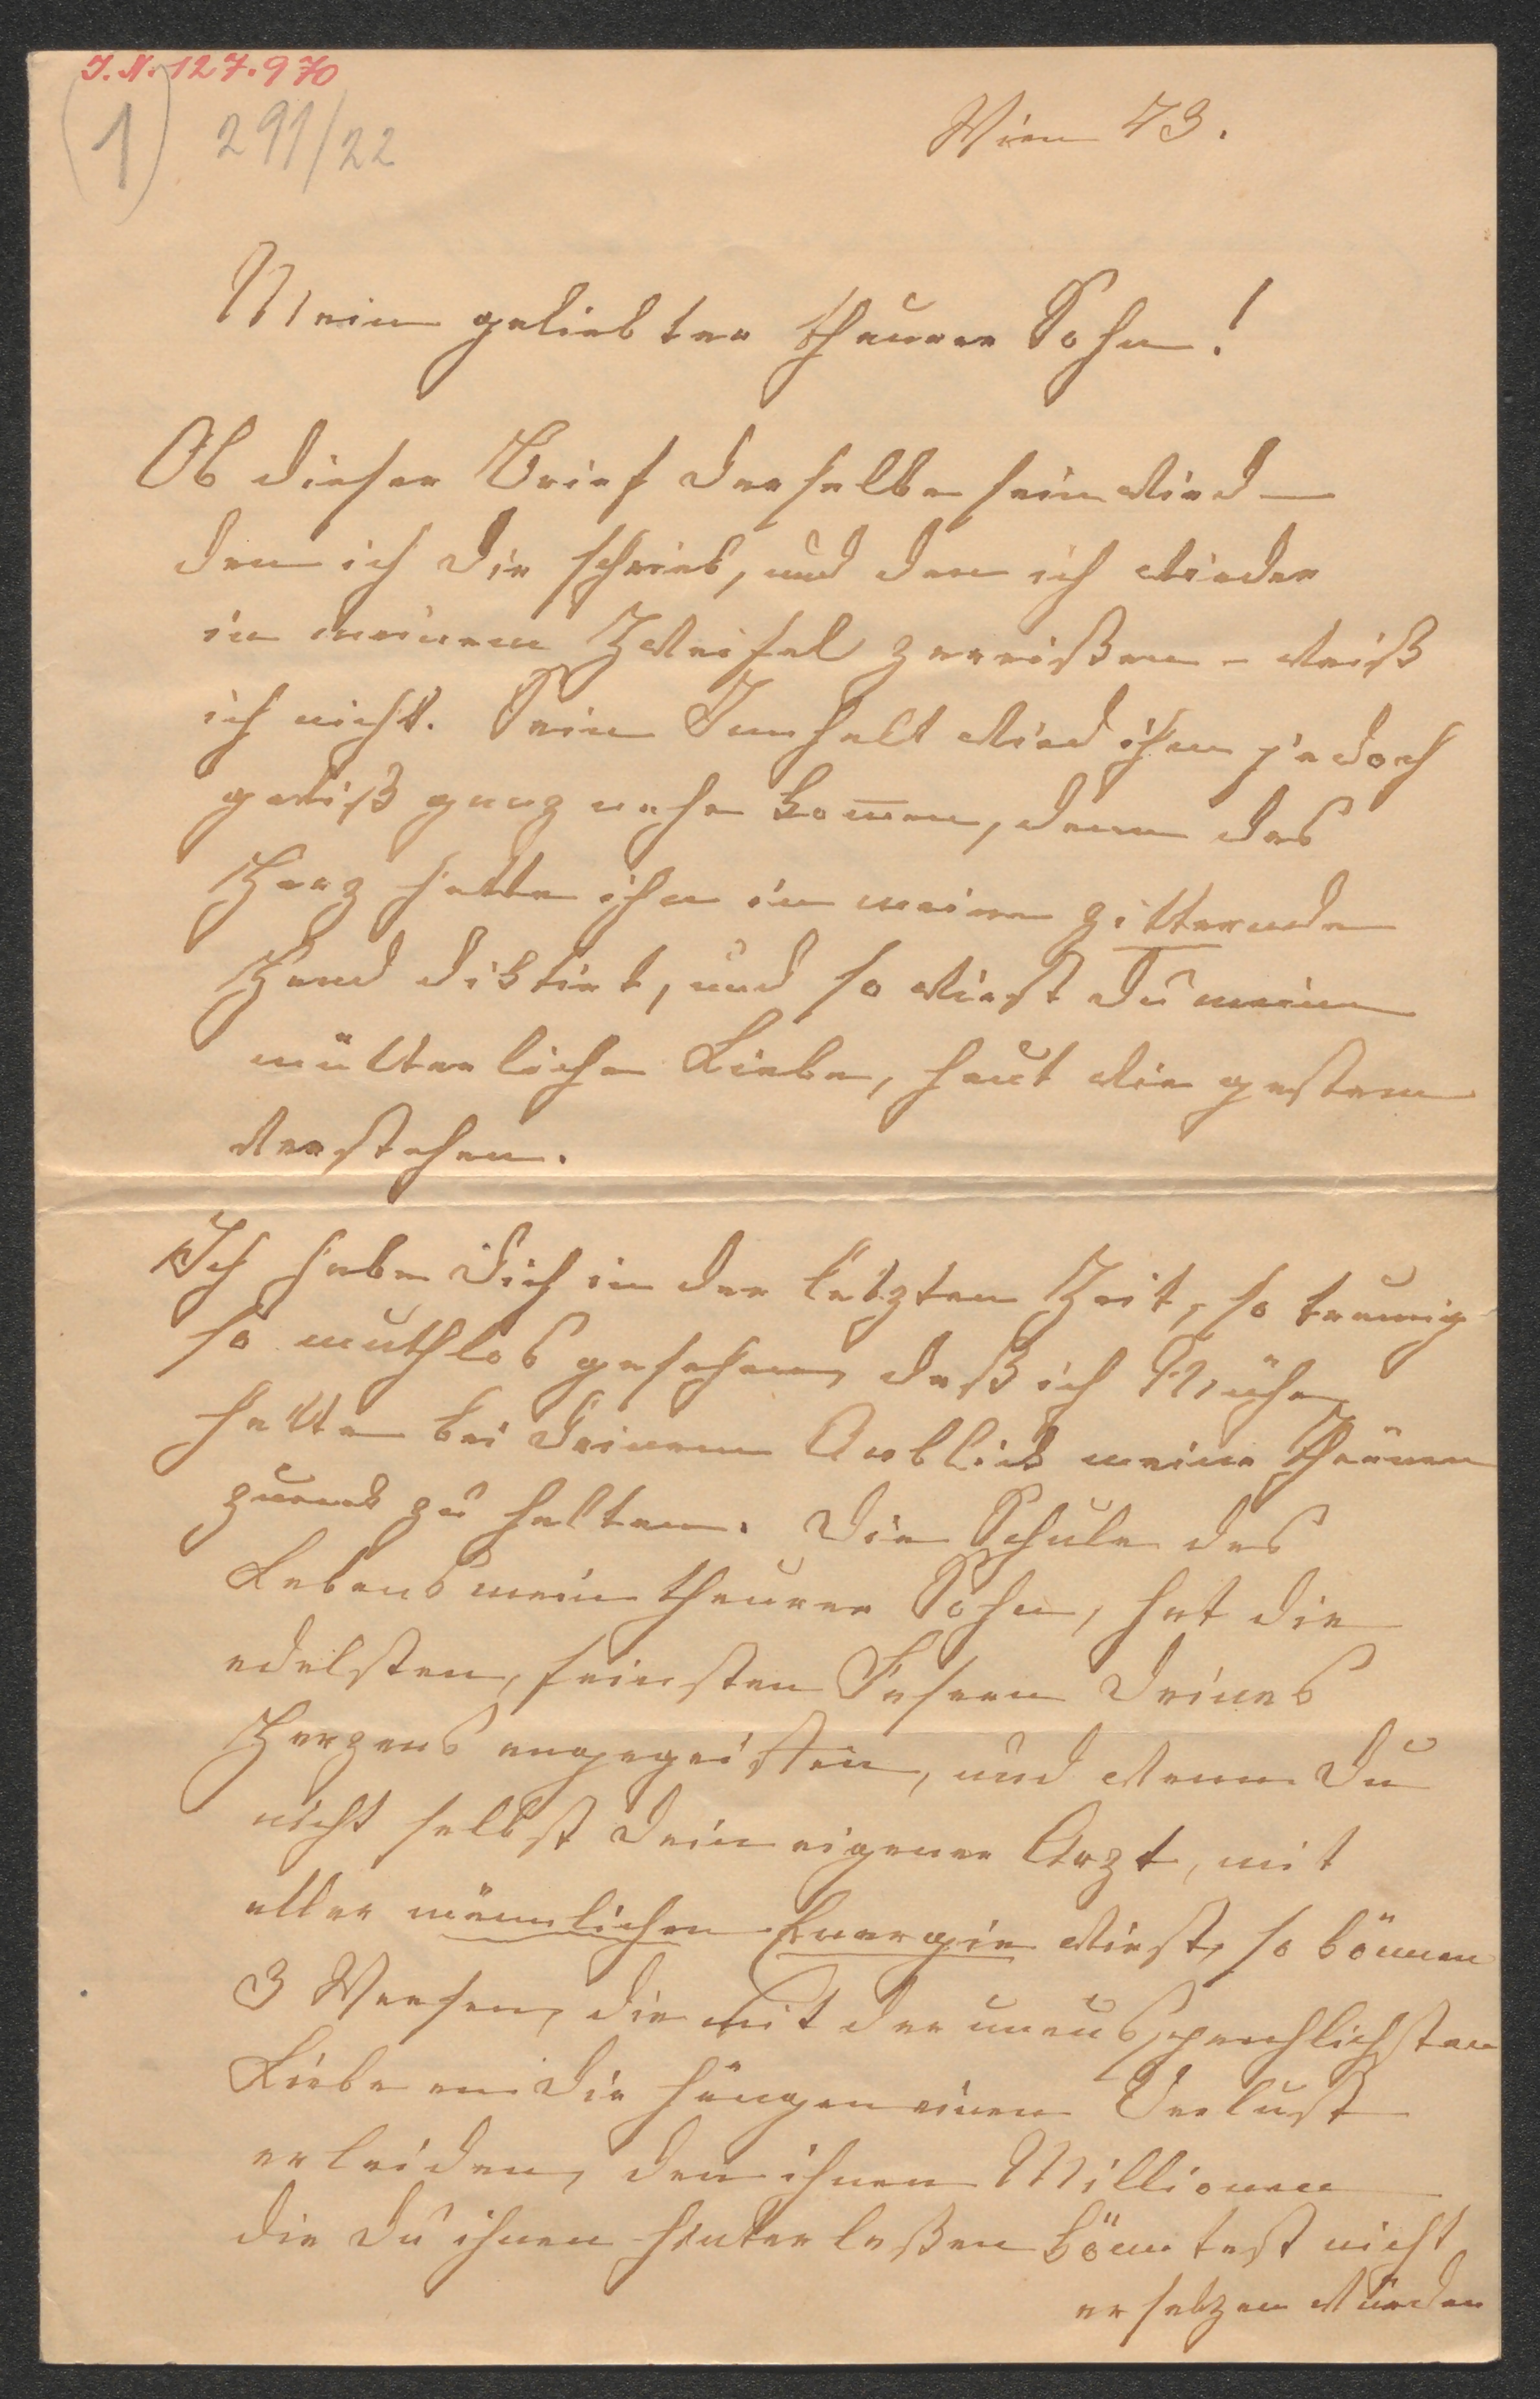 I. N. 127.970
(1) 291/22
Wien 73.
Mein geliebter theurer Sohn!
Ob dieser Brief derselbe sein wird
den ich Dir schrieb, und den ich wieder
in meinem Zweifel zerrißen – weiß
ich nicht. Sein Innhalt wird ihm jedoch
gewiß ganz nahe kom̅en, denn das
Herz hatte ihn in meine zitternde
Hand diktirt, und so wirst du meine
mütterliche Liebe, heut wie gestern
verstehen.
Ich habe Dich in der letzten Zeit, so traurig
so muthlos gesehen, daß ich Mühe
hatte bei Deinem Anblick meine Thränen
zurück zu halten. Die Schule des
Lebens mein theurer Sohn, hat die
edelsten, feinsten Fasern Deines
Herzens angegriffen, und wenn Du
nicht selbst Dein eigener Arzt, mit
aller männlichen Energie wirst, so können
3 Wesen, die mit der unaussprechlichsten
Liebe an Dir hängen einen Verlust
erleiden, den ihnen Millionen
die Du ihnen hinterlaßen könntest nicht
ersetzen würden